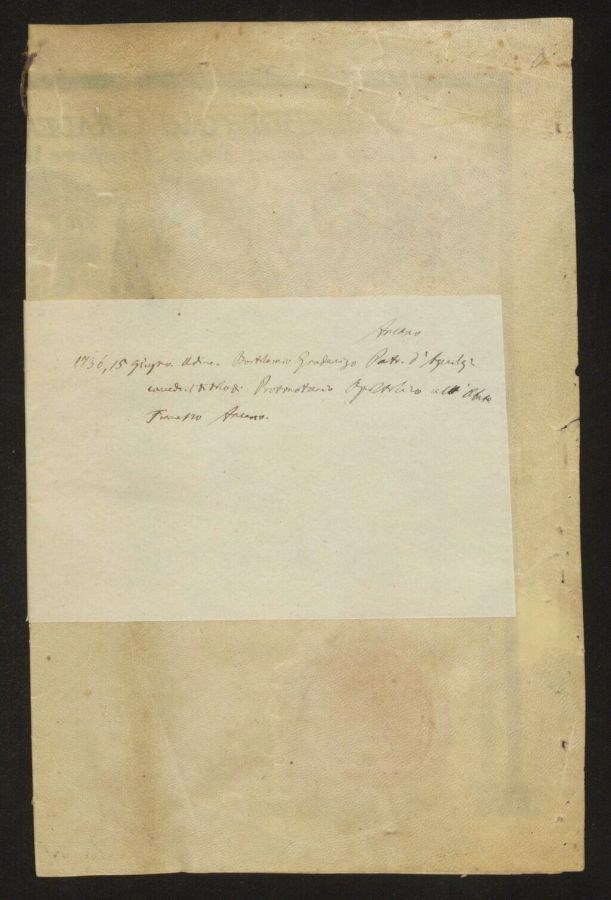 Arcano
1736, 15 Giugno. Udine. Bartolomio Gradenigo Patr. d'Aquil.
concede il titolo di Protonotario Apostolico all'Abate
Francesco Arcano.